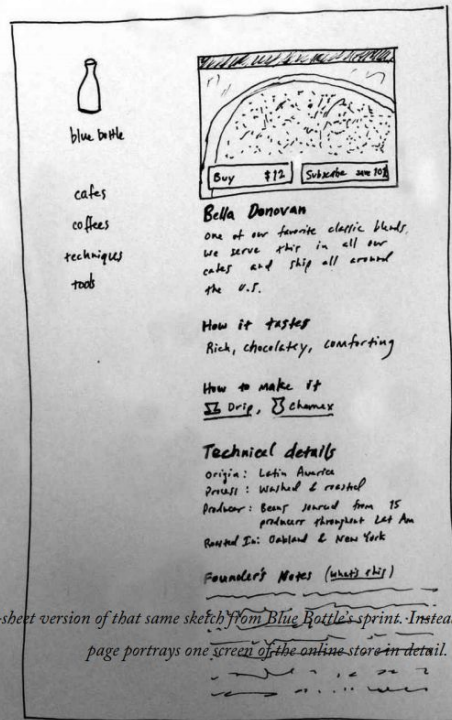 blue bottle
cafes
coffees
techniques
tools
Buy $12
Subscribe save 10%
Bella Donovan
One of our favorite classic blends.
We serve this in all our
cafes and ship all around
the U.S.
How it tastes
Rich, chocolatey, comforting
How to make it
Drip, Chemex
Technical details
Origin: Latin America
Process: Washed & roasted
Producer: Beans sourced from 15
producers throughout Lat Am
Roasted In: Oakland & New York
Founder's Notes (what's this)
-sheet version of that same sketch from Blue Bottle's sprint. Instea
page portrays one screen of the online store in detail.